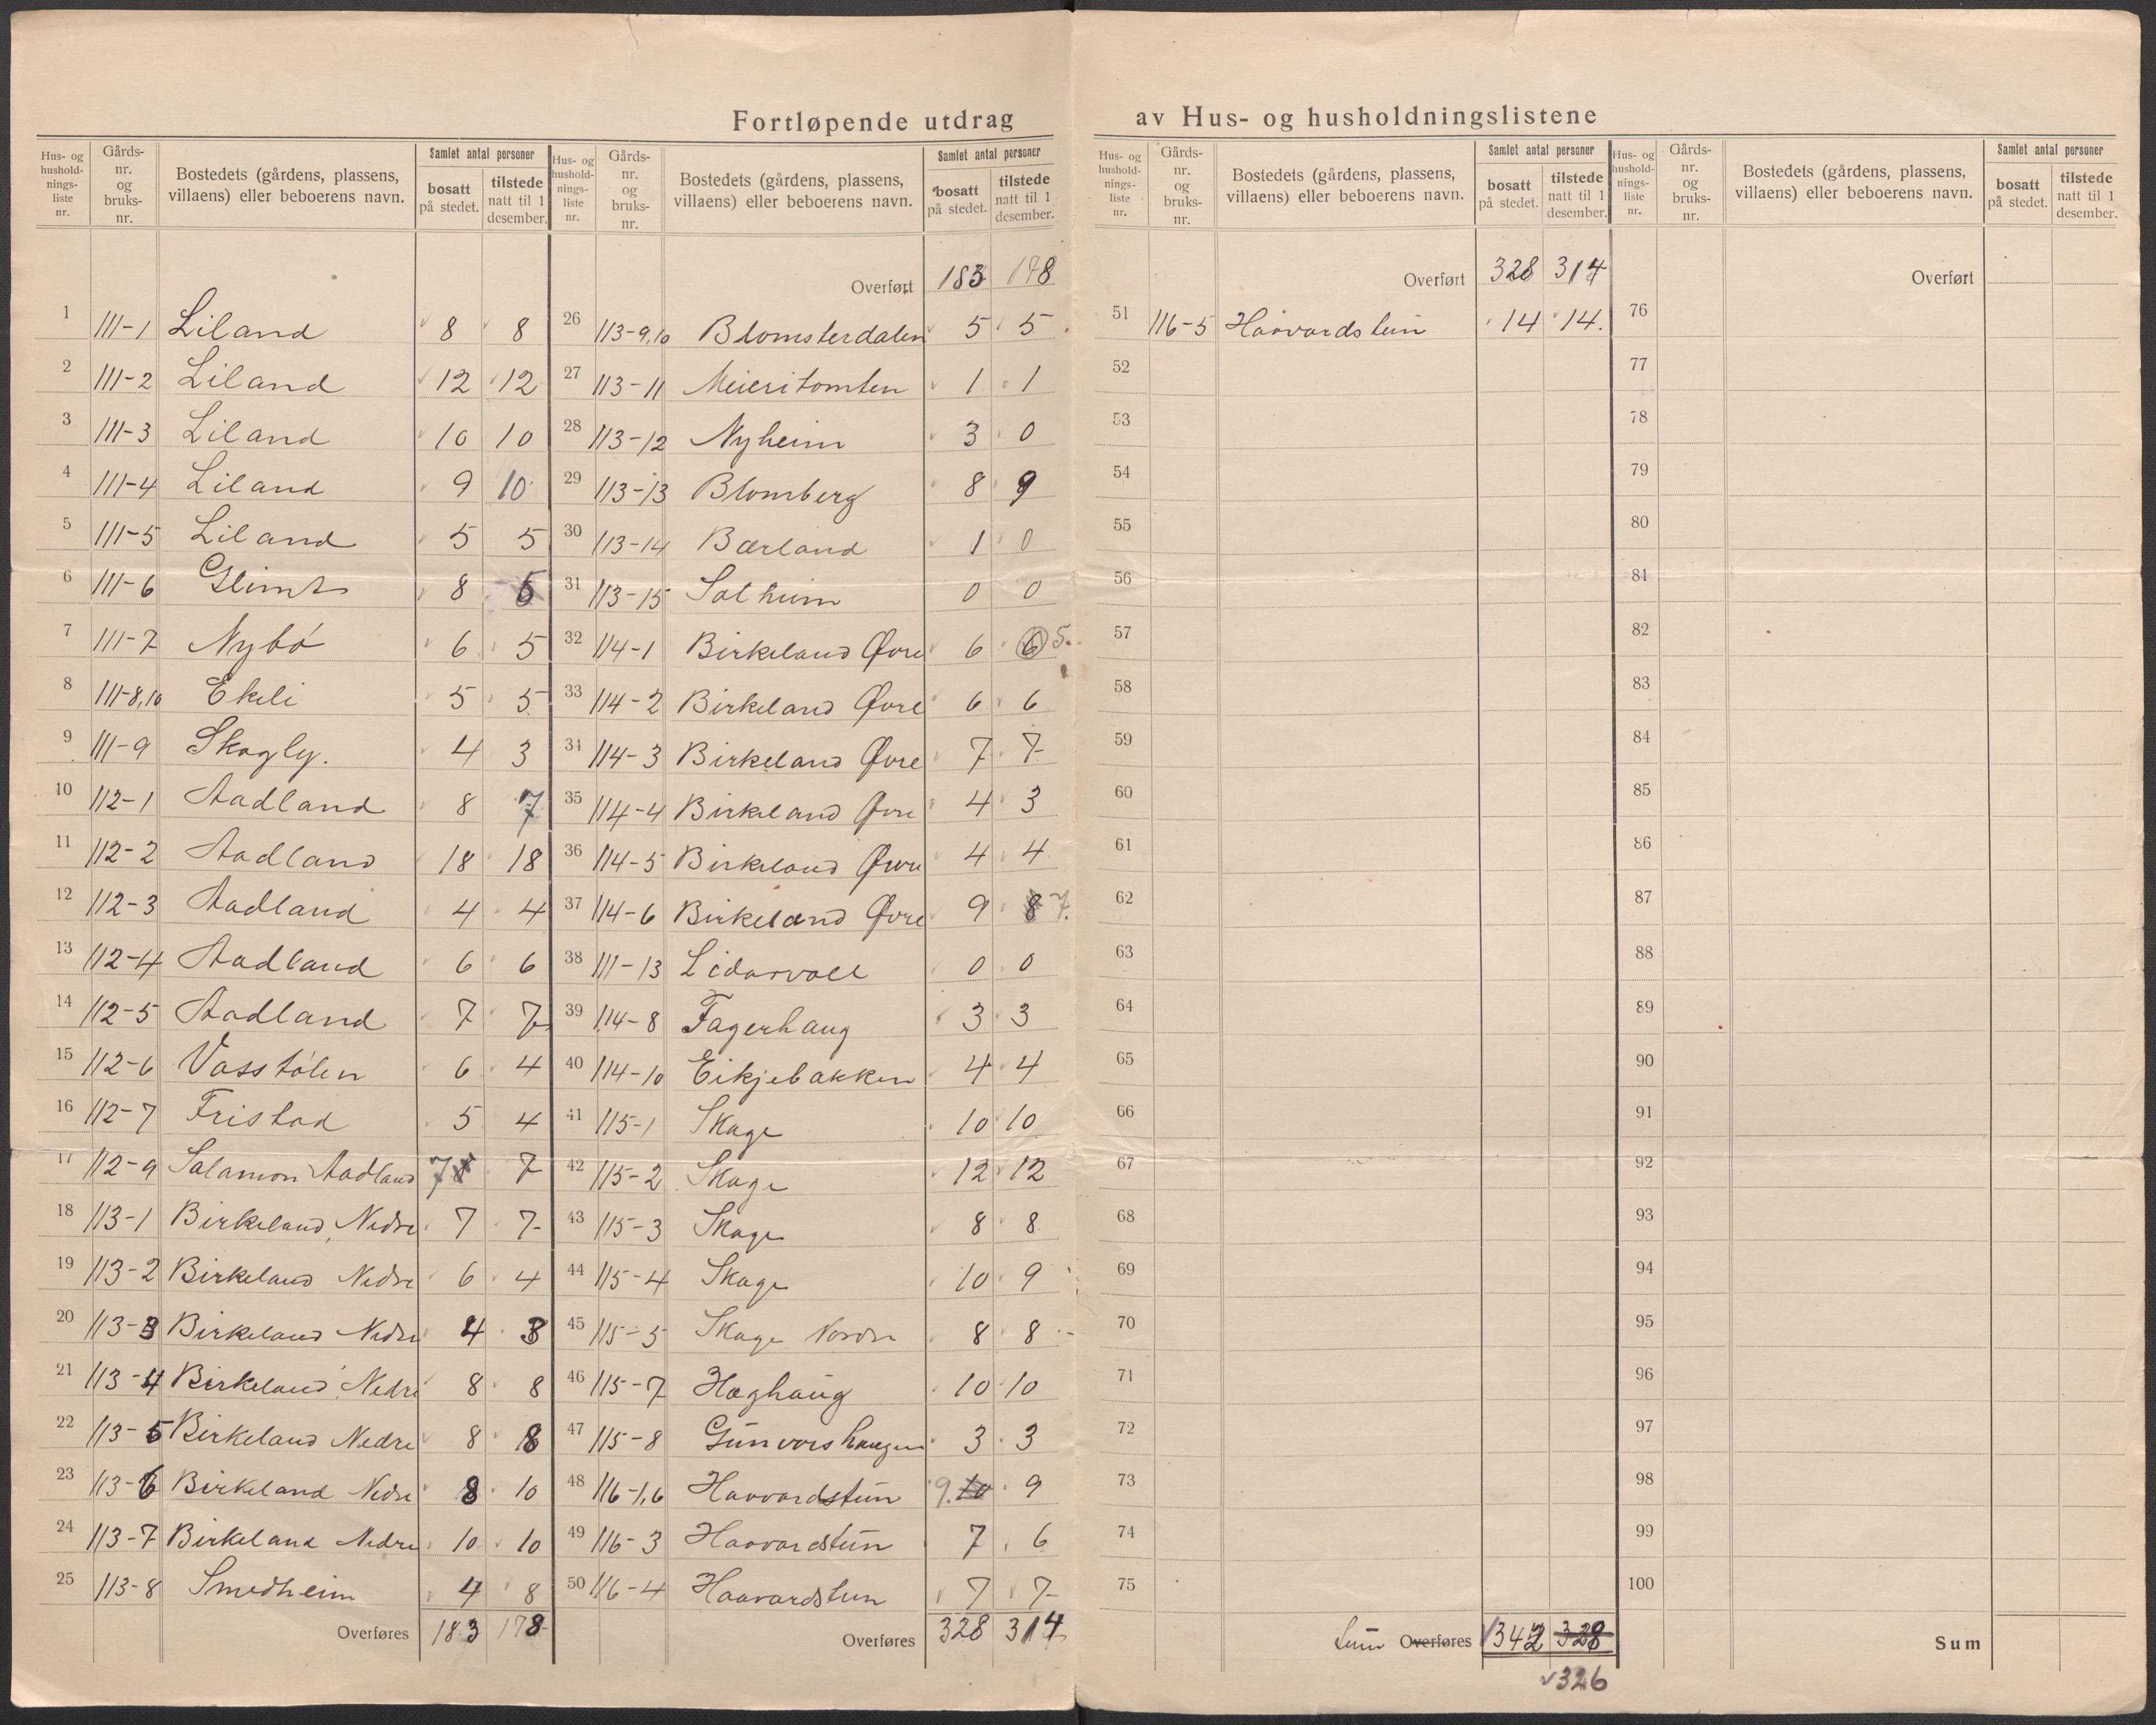 Fortløpende utdrag av Hus- og husholdningslistene
Hus- og hushold- nings- liste nr. Gårds- nr. og bruks- nr. Bostedets (gårdens, plassens, villaens) eller beboerens navn. Samlet antal personer bosatt på stedet. tilstede natt til 1 desember.
1 111-1 Liland 8 8
2 111-2 Liland 12 12
3 111-3 Liland 10 10
4 111-4 Liland 9 10
5 111-5 Liland 5 5
6 111-6 Glimt 8
7 111-7 Nybø 6 5
8 111-8,10 Ekeli 5 5
9 111-9 Skogly. 4 3
10 112-1 Aadland 8 7
11 112-2 Aadland 18 18
12 112-3 Aadland 4 4
13 112-4 Aadland 6 6
14 112-5 Aadland 7 7
15 112-6 Vasstølen 6 4
16 112-7 Fristad 5 4
17 112-9 Salamon Aadland 7 7
18 113-1 Birkeland, Nedre 7 7
19 113-2 Birkeland Nedre 6 4
20 113-3 Birkeland Nedre 4 3
21 113-4 Birkeland Nedre 8 8
22 113-5 Birkeland Nedre 8 8
23 113-6 Birkeland Nedre 8 10
24 113-7 Birkeland Nedre 10 10
25 113-8 Smedheim 4 8
Overføres 183 178
Hus- og hushold- nings- liste nr. Gårds- nr. og bruks- nr. Bostedets (gårdens, plassens, villaens) eller beboerens navn. Samlet antal personer bosatt på stedet. tilstede natt til 1 desember.
Overført 183 178
26 113-9,10 Blomsterdalen 5 5
27 113-11 Meieritomten 1 1
28 113-12 Nyheim 3 0
29 113-13 Blomberg 8 9
30 113-14 Bærland 1 0
31 113-15 Solheim 0 0
32 114-1 Birkeland Øvre 6 6 5.
33 114-2 Birkeland Øvre 6 6
34 114-3 Birkeland Øvre 7 7
35 114-4 Birkeland Øvre 4 3
36 114-5 Birkeland Øvre 4 4
37 114-6 Birkeland Øvre 9 8 7.
38 111-13 Lidarvoll 0 0
39 114-8 Fagerhaug 3 3
40 114-10 Eikjebakken 4 4
41 115-1 Skage 10 10
42 115-2 Skage 12 12
43 115-3 Skage 8 8
44 115-4 Skage 10 9
45 115-5 Skage Nordre 8 8
46 115-7 Haghaug 10 10
47 115-8 Gunvorshaugen 3 3
48 116-1,6 Haavardstun 9. 10 9
49 116-3 Haavardstun 7 6
50 116-4 Haavardstun 7 7
Overføres 328 314
Hus- og hushold- nings- liste nr. Gårds- nr. og bruks- nr. Bostedets (gårdens, plassens, villaens) eller beboerens navn. Samlet antal personer bosatt på stedet. tilstede natt til 1 desember.
Overført 328 314
51 116-5 Haavardstun 14 14.
52
53
54
55
56
57
58
59
60
61
62
63
64
65
66
67
68
69
70
71
72
73
74
75
Sum Overføres 342 328
326
Hus- og hushold- nings- liste nr. Gårds- nr. og bruks- nr. Bostedets (gårdens, plassens, villaens) eller beboerens navn. Samlet antal personer bosatt på stedet. tilstede natt til 1 desember.
Overført
76
77
78
79
80
81
82
83
84
85
86
87
88
89
90
91
92
93
94
95
96
97
98
99
100
Sum